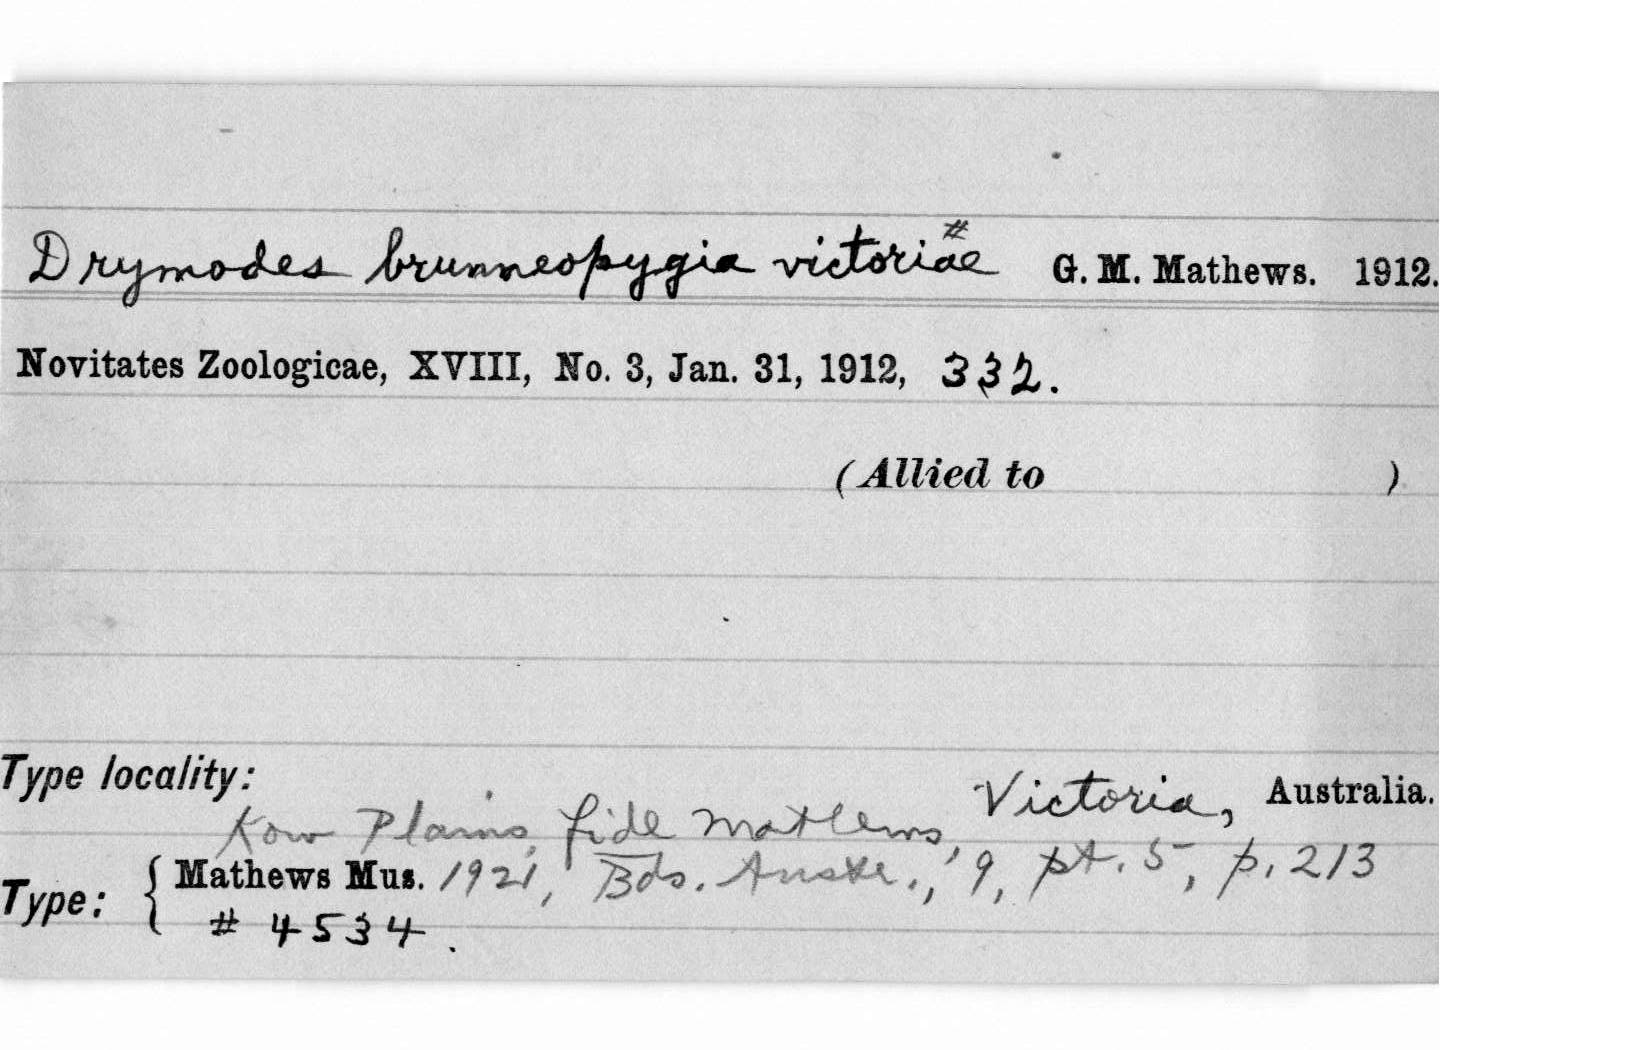 Drymodes brunneopygia victoriae # G. M. Mathews. 1912.
Novitates Zoologicae, XVIII, No. 3, Jan. 31, 1912, 332.
(Allied to )
Type locality: Victoria, Australia.
Kow Plains, fide Mathews,
Type: { Mathews Mus. 1921, Bds. Austr., 9, pt. 5, p. 213
# 4534.